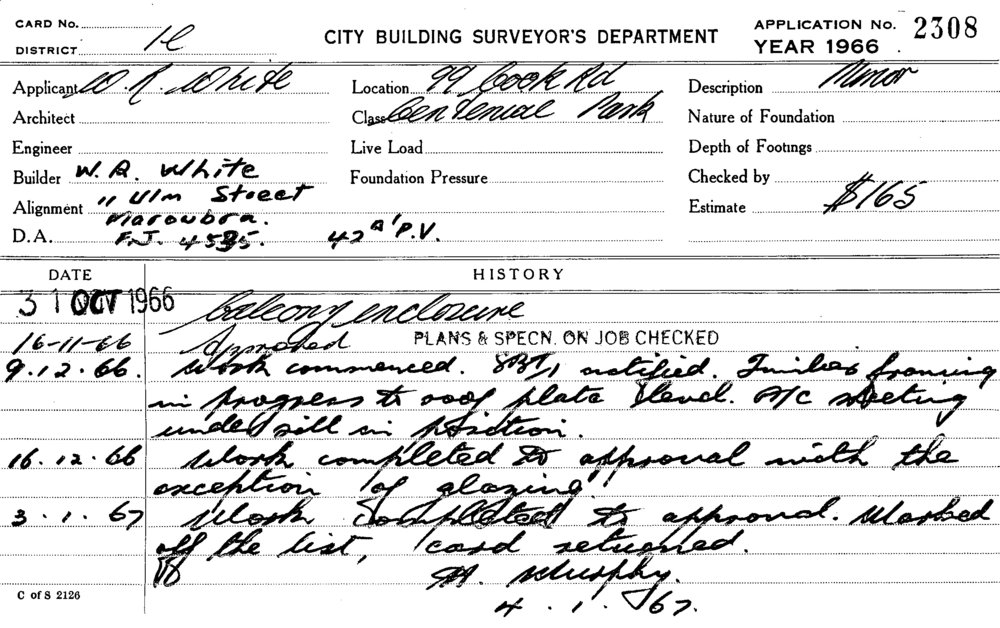 CARD No.
DISTRICT
CITY BUILDING SURVEYOR'S DEPARTMENT
APPLICATION No. 2308
YEAR 1966
Applicant W. R. White
Location 99 Cook Rd
Description Minor
Architect
Class Centenial Park
Nature of Foundation
Engineer
Live Load
Depth of Footings
Builder W. R. White
Foundation Pressure
Checked by
11 Ulm Street
Alignment Maroubra.
Estimate $165
D.A. F.J. 4535. 42 P.V.
DATE HISTORY
31 OCT 1966 balcony enclosure
16-11-66 Approved PLANS & SPECN. ON JOB CHECKED
9.12.66. Work commenced. notified. Timber framing
in progress to roof plate level. A/C sheeting
under sill in position.
16.12.66 Work completed to approval with the
exception of glazing.
3.1.67 Work completed to approval. Marked
off the list, card returned.
M. Murphy.
4.1.67.
C of S 2126